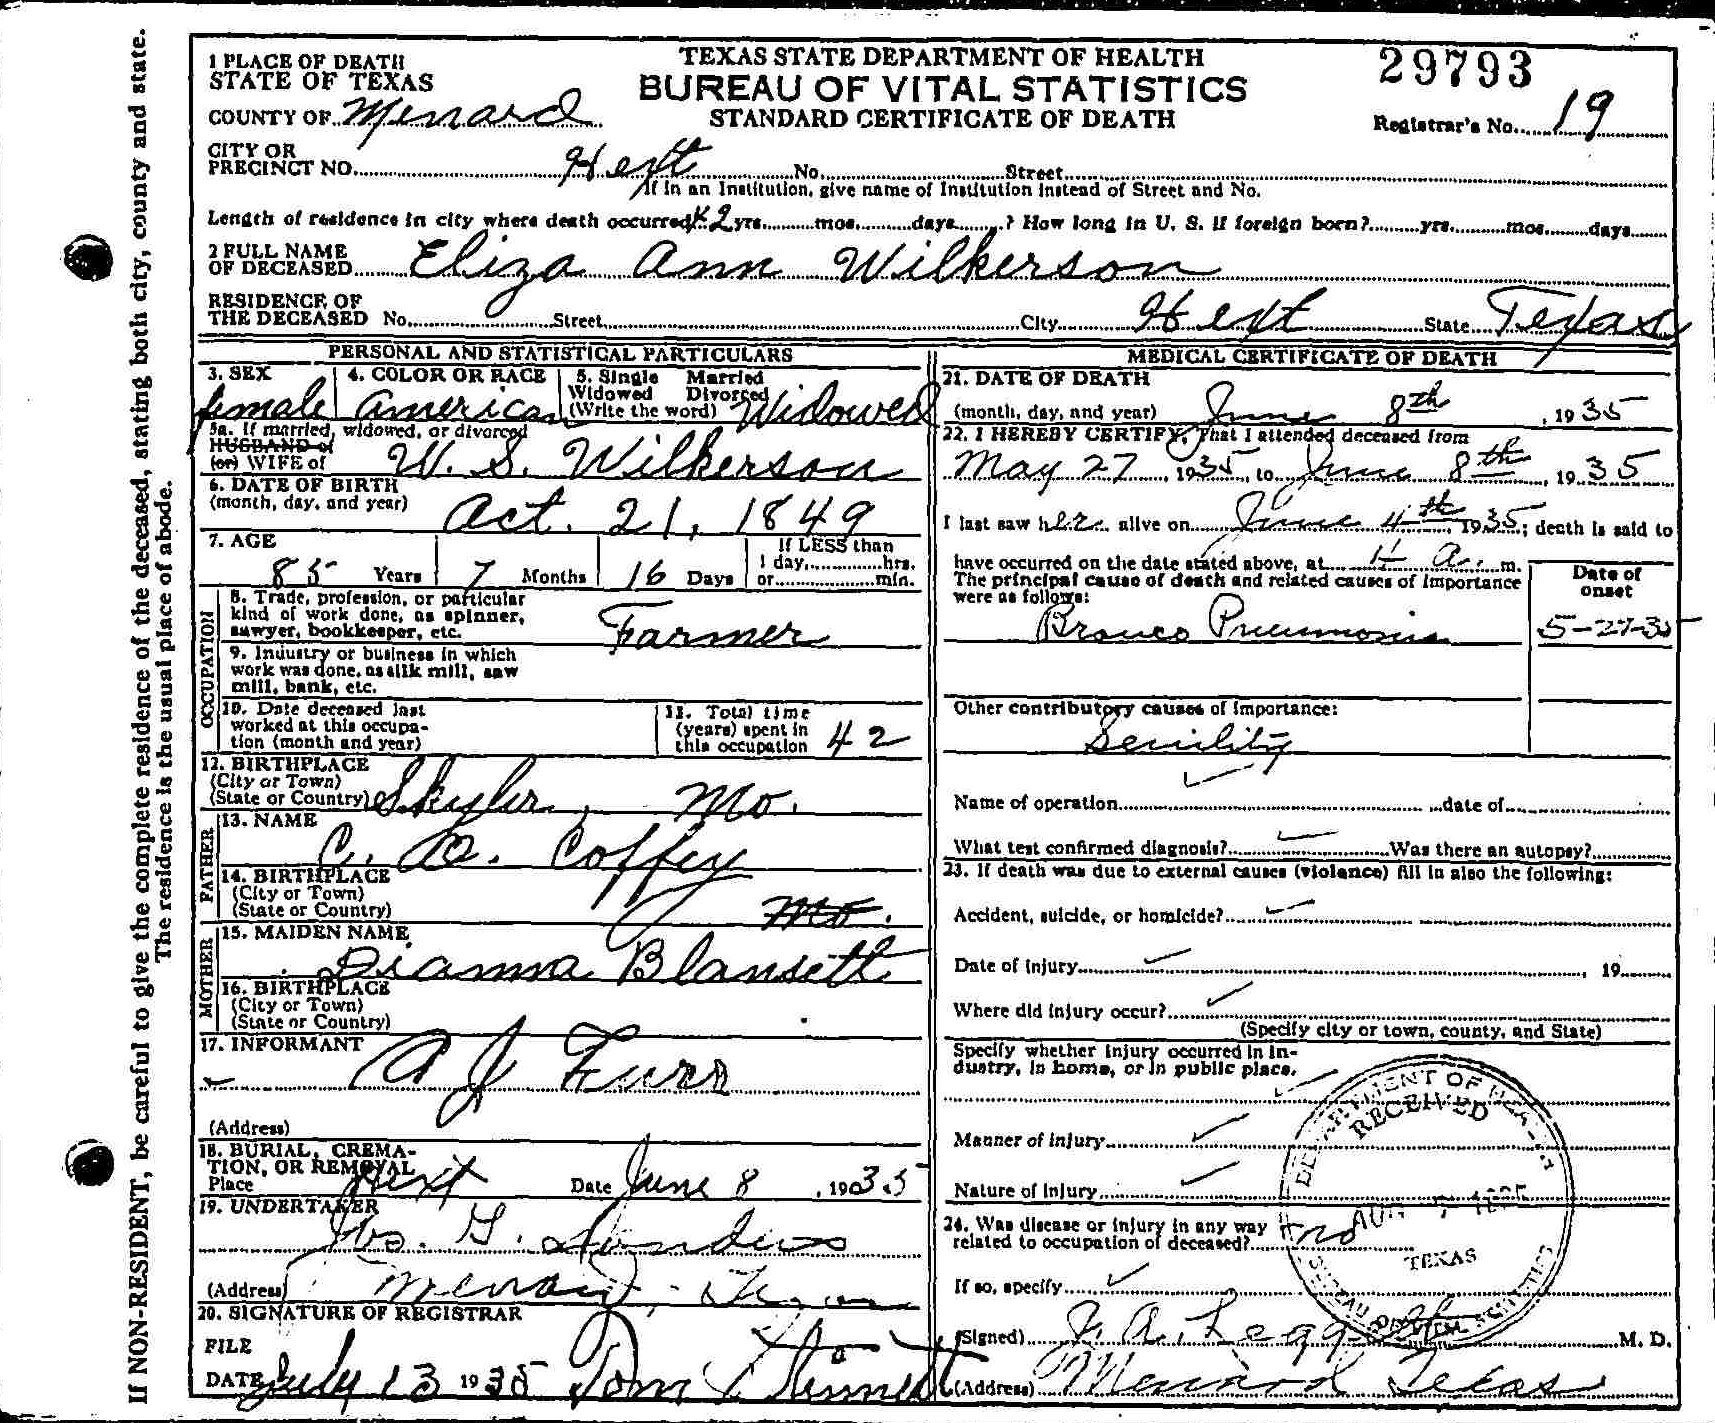 If NON-RESIDENT, be careful to give the complete residence of the deceased, stating both city, county and state.
The residence is the usual place of abode.
1 PLACE OF DEATH
STATE OF TEXAS
COUNTY OF Menard
TEXAS STATE DEPARTMENT OF HEALTH
BUREAU OF VITAL STATISTICS
STANDARD CERTIFICATE OF DEATH
29793
Registrar's No. 19
CITY OR
PRECINCT NO. Hext No. Street
If in an Institution, give name of Institution instead of Street and No.
Length of residence in city where death occurred 42 yrs. mos. days ? How long in U. S. if foreign born? yrs. mos. days
2 FULL NAME
OF DECEASED Eliza Ann Wilkerson
RESIDENCE OF
THE DECEASED No. Street City Hext State Texas
PERSONAL AND STATISTICAL PARTICULARS
3. SEX
female
4. COLOR OR RACE
American
5. Single Married
Widowed Divorced
(Write the word) Widowed
5a. If married, widowed, or divorced
HUSBAND of
(or) WIFE of W. S. Wilkerson
6. DATE OF BIRTH
(month, day, and year) Oct. 21, 1849
7. AGE
85 Years 7 Months 16 Days
If LESS than
1 day, hrs.
or min.
OCCUPATION
8. Trade, profession, or particular
kind of work done, as spinner,
sawyer, bookkeeper, etc. Farmer
9. Industry or business in which
work was done, as silk mill, saw
mill, bank, etc.
10. Date deceased last
worked at this occupa-
tion (month and year)
11. Total time
(years) spent in
this occupation 42
12. BIRTHPLACE
(City or Town)
(State or Country) Skyler, Mo.
FATHER
13. NAME
C. D. Coffey
14. BIRTHPLACE
(City or Town)
(State or Country) Mo.
MOTHER
15. MAIDEN NAME
Dianna Blansett
16. BIRTHPLACE
(City or Town)
(State or Country)
17. INFORMANT
A J Furr
(Address)
18. BURIAL, CREMA-
TION, OR REMOVAL
Place Hext Date June 8, 1935
19. UNDERTAKER
(Address) Menard, Texas
20. SIGNATURE OF REGISTRAR
FILE
DATE July 13 1935 Tom
MEDICAL CERTIFICATE OF DEATH
21. DATE OF DEATH
(month, day, and year) June 8th, 1935
22. I HEREBY CERTIFY, That I attended deceased from
May 27, 1935, to June 8th, 1935
I last saw her alive on June 4th, 1935; death is said to
have occurred on the date stated above, at 4 a. m.
The principal cause of death and related causes of importance
were as follows:
Date of
onset
Bronco Pneumonia 5-27-35
Other contributory causes of importance:
Senility
Name of operation date of
What test confirmed diagnosis? Was there an autopsy?
23. If death was due to external causes (violence) fill in also the following:
Accident, suicide, or homicide?
Date of injury , 19
Where did injury occur?
(Specify city or town, county, and State)
Specify whether injury occurred in in-
dustry, in home, or in public place.
Manner of injury
Nature of injury
24. Was disease or injury in any way
related to occupation of deceased? no
If so, specify
(Signed) M. D.
(Address) Menard Texas
DEPARTMENT OF HEALTH
RECEIVED
AUG
TEXAS